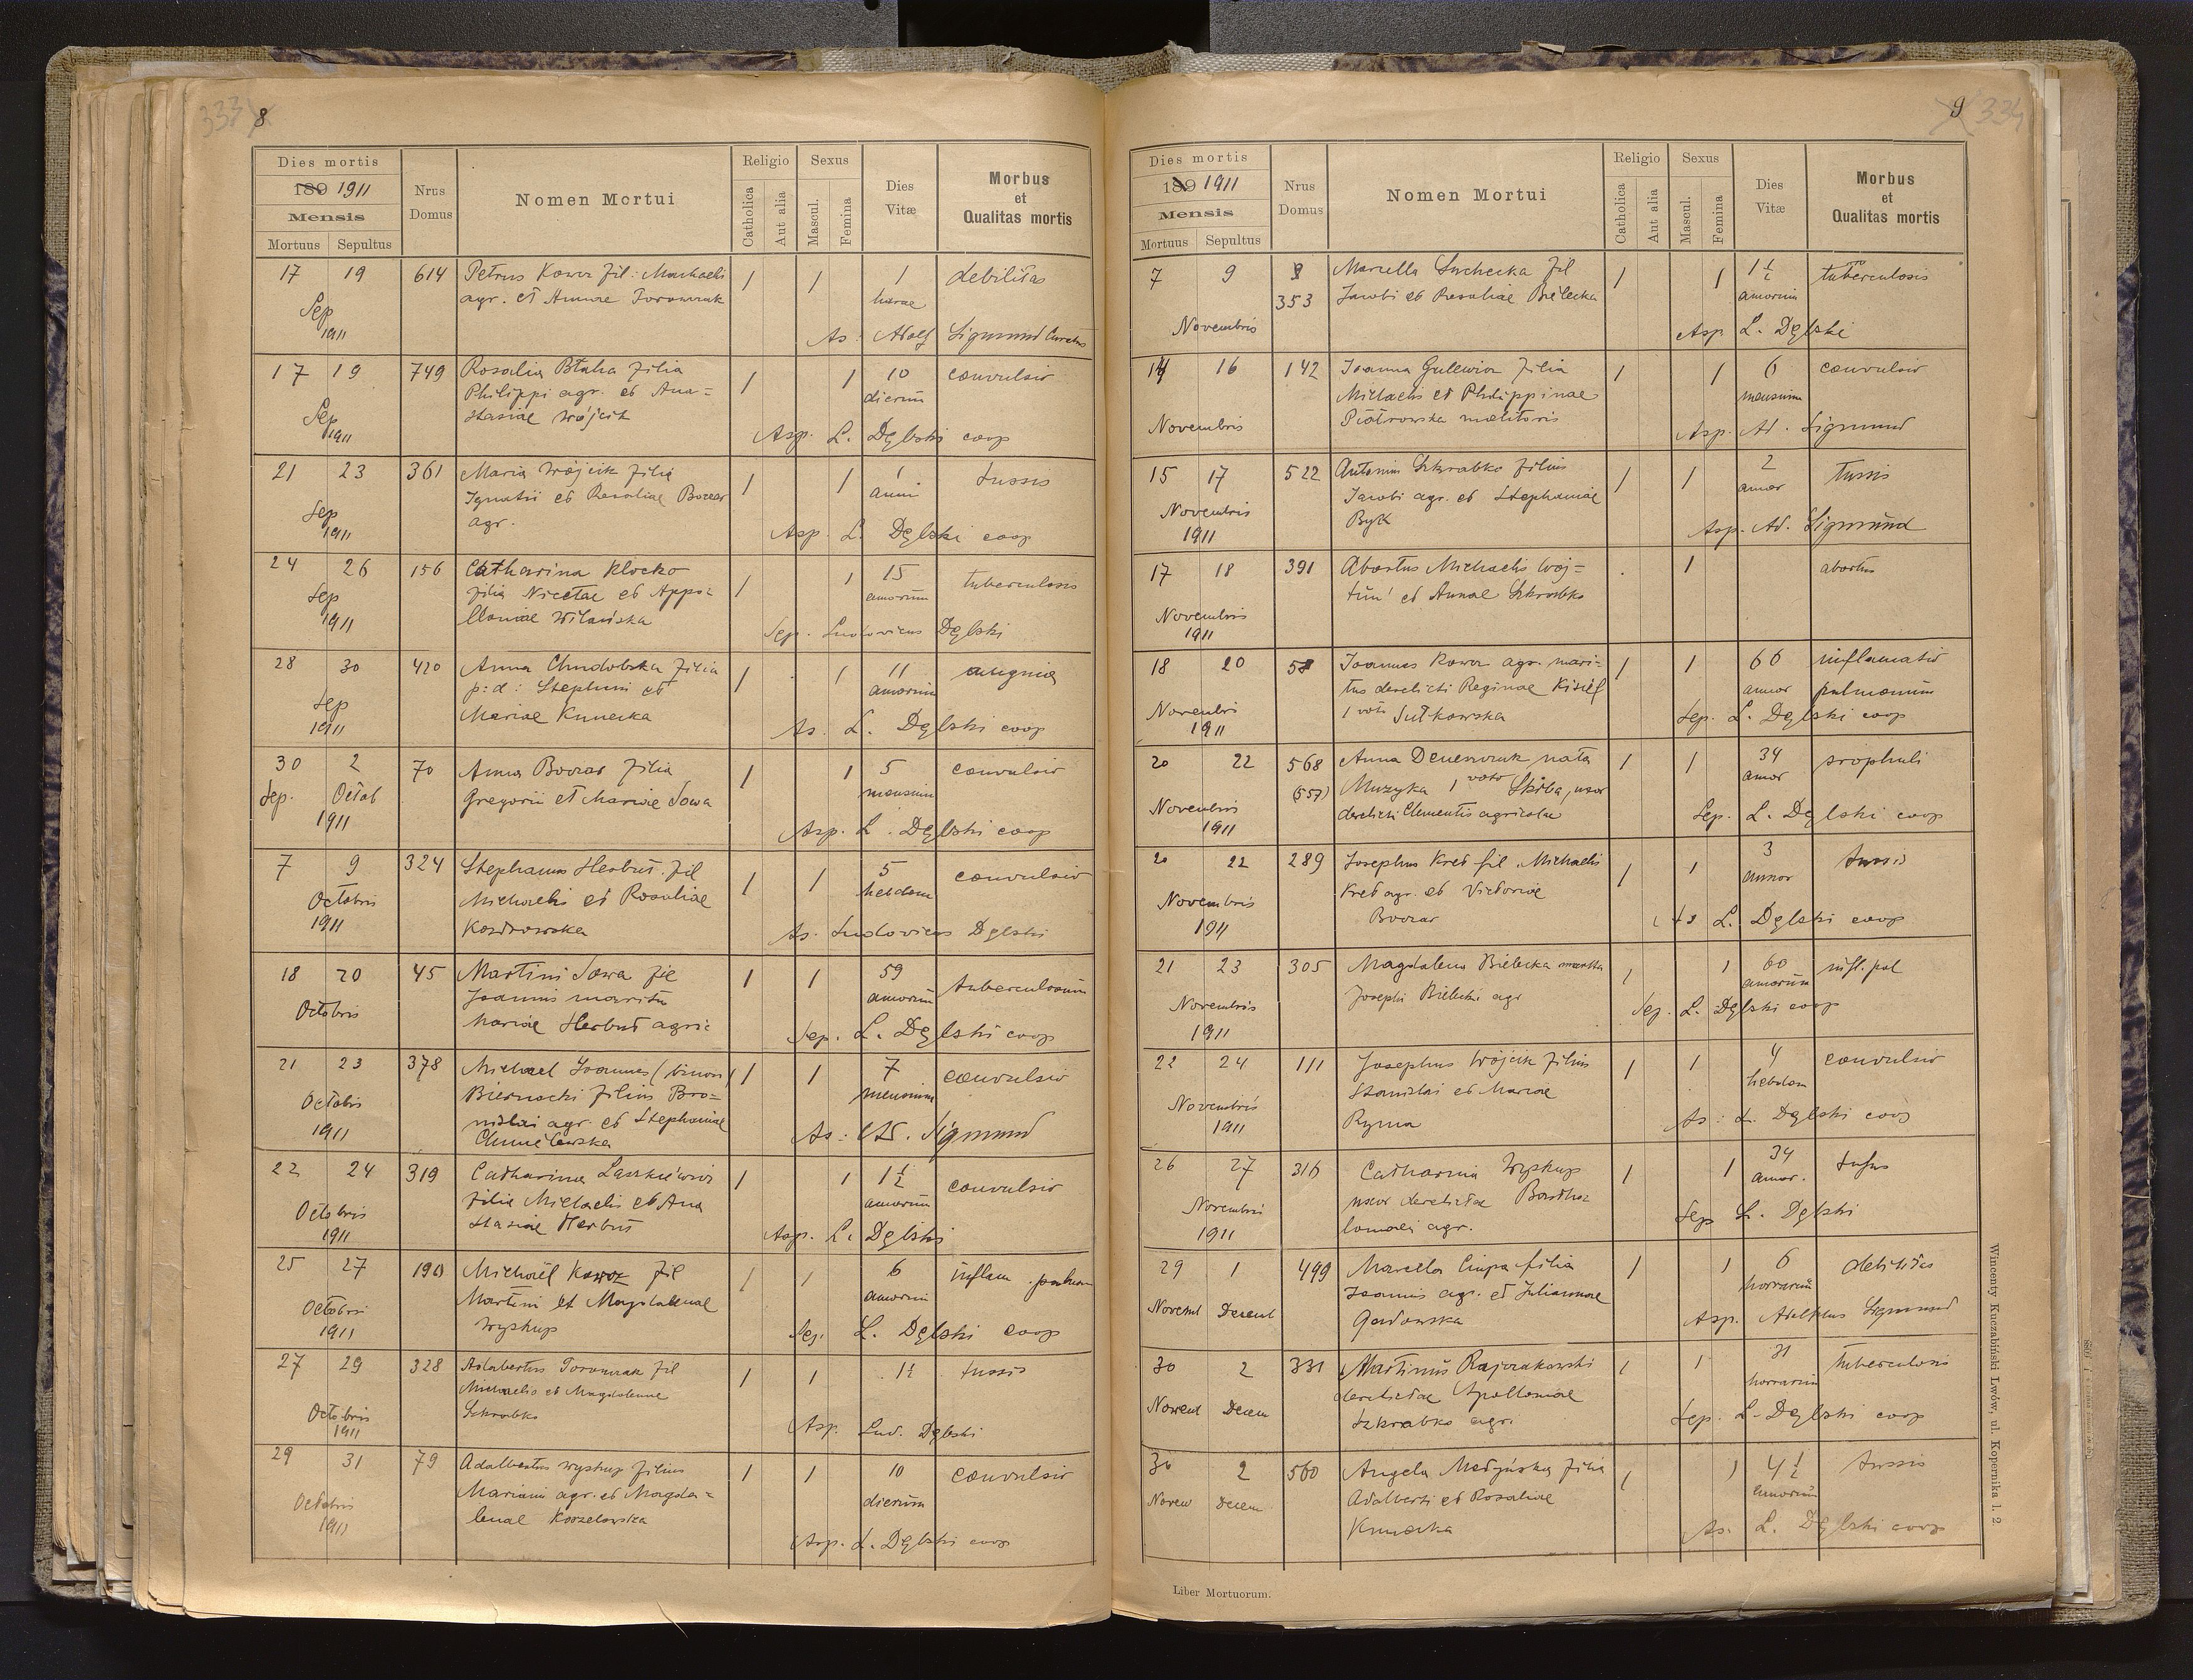 8
Dies mortis
189 1911
Mensis
Mortuus Sepultus
Nrus Domus
Nomen Mortui
Religio
Catholica
Aut alia
Sexus
Mascul.
Femina
Dies Vitæ
Morbus et Qualitas mortis
17 19 614 Petrus Kowcz fil: Michaelis 1 1 1 debilitas
agr. et Annae horae
Sep
1911 As. Adolf Sigmund
17 19 749 Rosalia Błaha filia 1 1 10 convulsio
Philippi agr. et Ana= dierum
Sep stasiae Wójcik
1911 Asp. L. Dęlski coop
21 23 361 Maria Wójcik filia 1 1 1 tussis
Ignatii et Rosaliae anni
Sep agr.
1911 Asp. L. Dęlski coop
24 26 156 Catharina Klocko 1 1 15 tuberculosis
filia Nicetae et Appo= annorum
Sep lloniae Wilańska
1911 Sep. Ludovicus Dęlski
28 30 420 Anna Chudobska filia 1 1 11
p: d: Stephani et annorum
Sep Mariae
1911 As. L. Dęlski coop
30 2 70 Anna filia 1 1 5 convulsio
Sep. Octob Gregorii et Mariae Sowa mensium
1911 Asp. L. Dęlski coop
7 9 324 Stephanus Herbut fil 1 1 5 convulsio
Octobris Michaelis et Rosaliae hebdom
1911 As. Ludovicus Dęlski
18 20 45 Martini Sowa fil 1 1 59
Joannis annorum
Octobris Mariae Herbut agric
Sep. L. Dęlski coop
21 23 378 Michael Joannes 1 1 7 convulsio
Octobris Biernacki filius Bro= mensium
1911 nislai agr. et Stephaniae
As: Ad. Sigmund
22 24 319 Catharina Laszkiewicz 1 1 1 1/2 convulsio
filia Michaelis et Ana annorum
Octobris stasiae Herbut
1911 Asp. L. Dęlski
25 27 190 Michaël Kowcz fil 1 1 6 inflam. pulmon
Octobris Martini et Magdalenae annorum
1911 Wyskup
Sep. L. Dęlski coop
27 29 328 Adalbertus fil 1 1 1 1/2 tussis
Michaelis et Magdalenae
Octobris Szkrabko
1911 Asp. Lud. Dęlski
29 31 79 Adalbertus Wyskup filius 1 1 10 convulsio
Mariani agr. et Magda= dierum
Octobris lenae
1911 Asp. L. Dęlski coop
9 334
Dies mortis
189 1911
Mensis
Mortuus Sepultus
Nrus Domus
Nomen Mortui
Religio
Catholica
Aut alia
Sexus
Mascul.
Femina
Dies Vitæ
Morbus et Qualitas mortis
7 9 353 Marcella Suchecka fil 1 1 1 1/2 tuberculosis
Jacobi et Rosaliae Bielecka annorum
Novembris Asp L. Dęlski
14 16 142 Joanna Gulewicz filia 1 1 6 convulsio
Michaelis et Philippinae mensium
Novembris Piotrowska molitoris
Asp. Ad. Sigmund
15 17 522 Antonius Szkrabko filius 1 1 2 tussis
Jacobi agr. et Stephaniae annor
Novembris Byk
1911 Asp. Ad. Sigmund
17 18 391 Abortus Michaelis Woj= 1 abortus
et Annae Szkrabko
Novembris
1911
18 20 Joannes Kowcz agr. mari= 1 1 66 inflamatio
tus derelicti Reginae Kisiel annor pulmonum
Novembri 1 voto Sułkowska
1911 Sep. L. Dęlski coop
20 22 568 Anna nata 1 1 34
(557) Muzyka 1 voto Skiba, uxor annor
Novembris derelicti Clementis agricolae
1911 Sep. L. Dęlski coop
20 22 289 Josephus Kret fil. Michaelis 1 1 3 tussis
Kret agr. et Victoriae annor
Novembris
1911 As L. Dęlski coop
21 23 305 Magdalena Bielecka 1 1 60 infl. pul
Josephi Bielecki agr annorum
Novembris Sep. L. Dęlski coop
1911
22 24 111 Josephus Wójcik filius 1 1 4 convulsio
Stanislai et Mariae hebdom
Novembris
1911 As: L. Dęlski coop
26 27 316 Catharina Wyskup 1 1 34
uxor derelictae Bartho= annor.
Novembri lomaei agr.
1911 Sep L. Dęlski
29 1 499 Marcella filia 1 1 6 debilitas
Joannis agr. et Juliannae horrarum
Novemb Decemb Gadowska
Asp. Adolphus Sigmund
30 2 331 Martinus Rajczakowski 1 1 31 tuberculosis
derelictae Apolloniae horrarum
Novemb Decem Szkrabko agr.
Sep. L. Dęlski coop
30 2 560 Angela Medyńska filia 1 1 4 1/2 tussis
Adalberti et Rosaliae annorum
Novem Decem
As. L. Dęlski coop
Liber Mortuorum.
Wincenty Kuczabiński Lwów, ul. Kopernika l. 2.